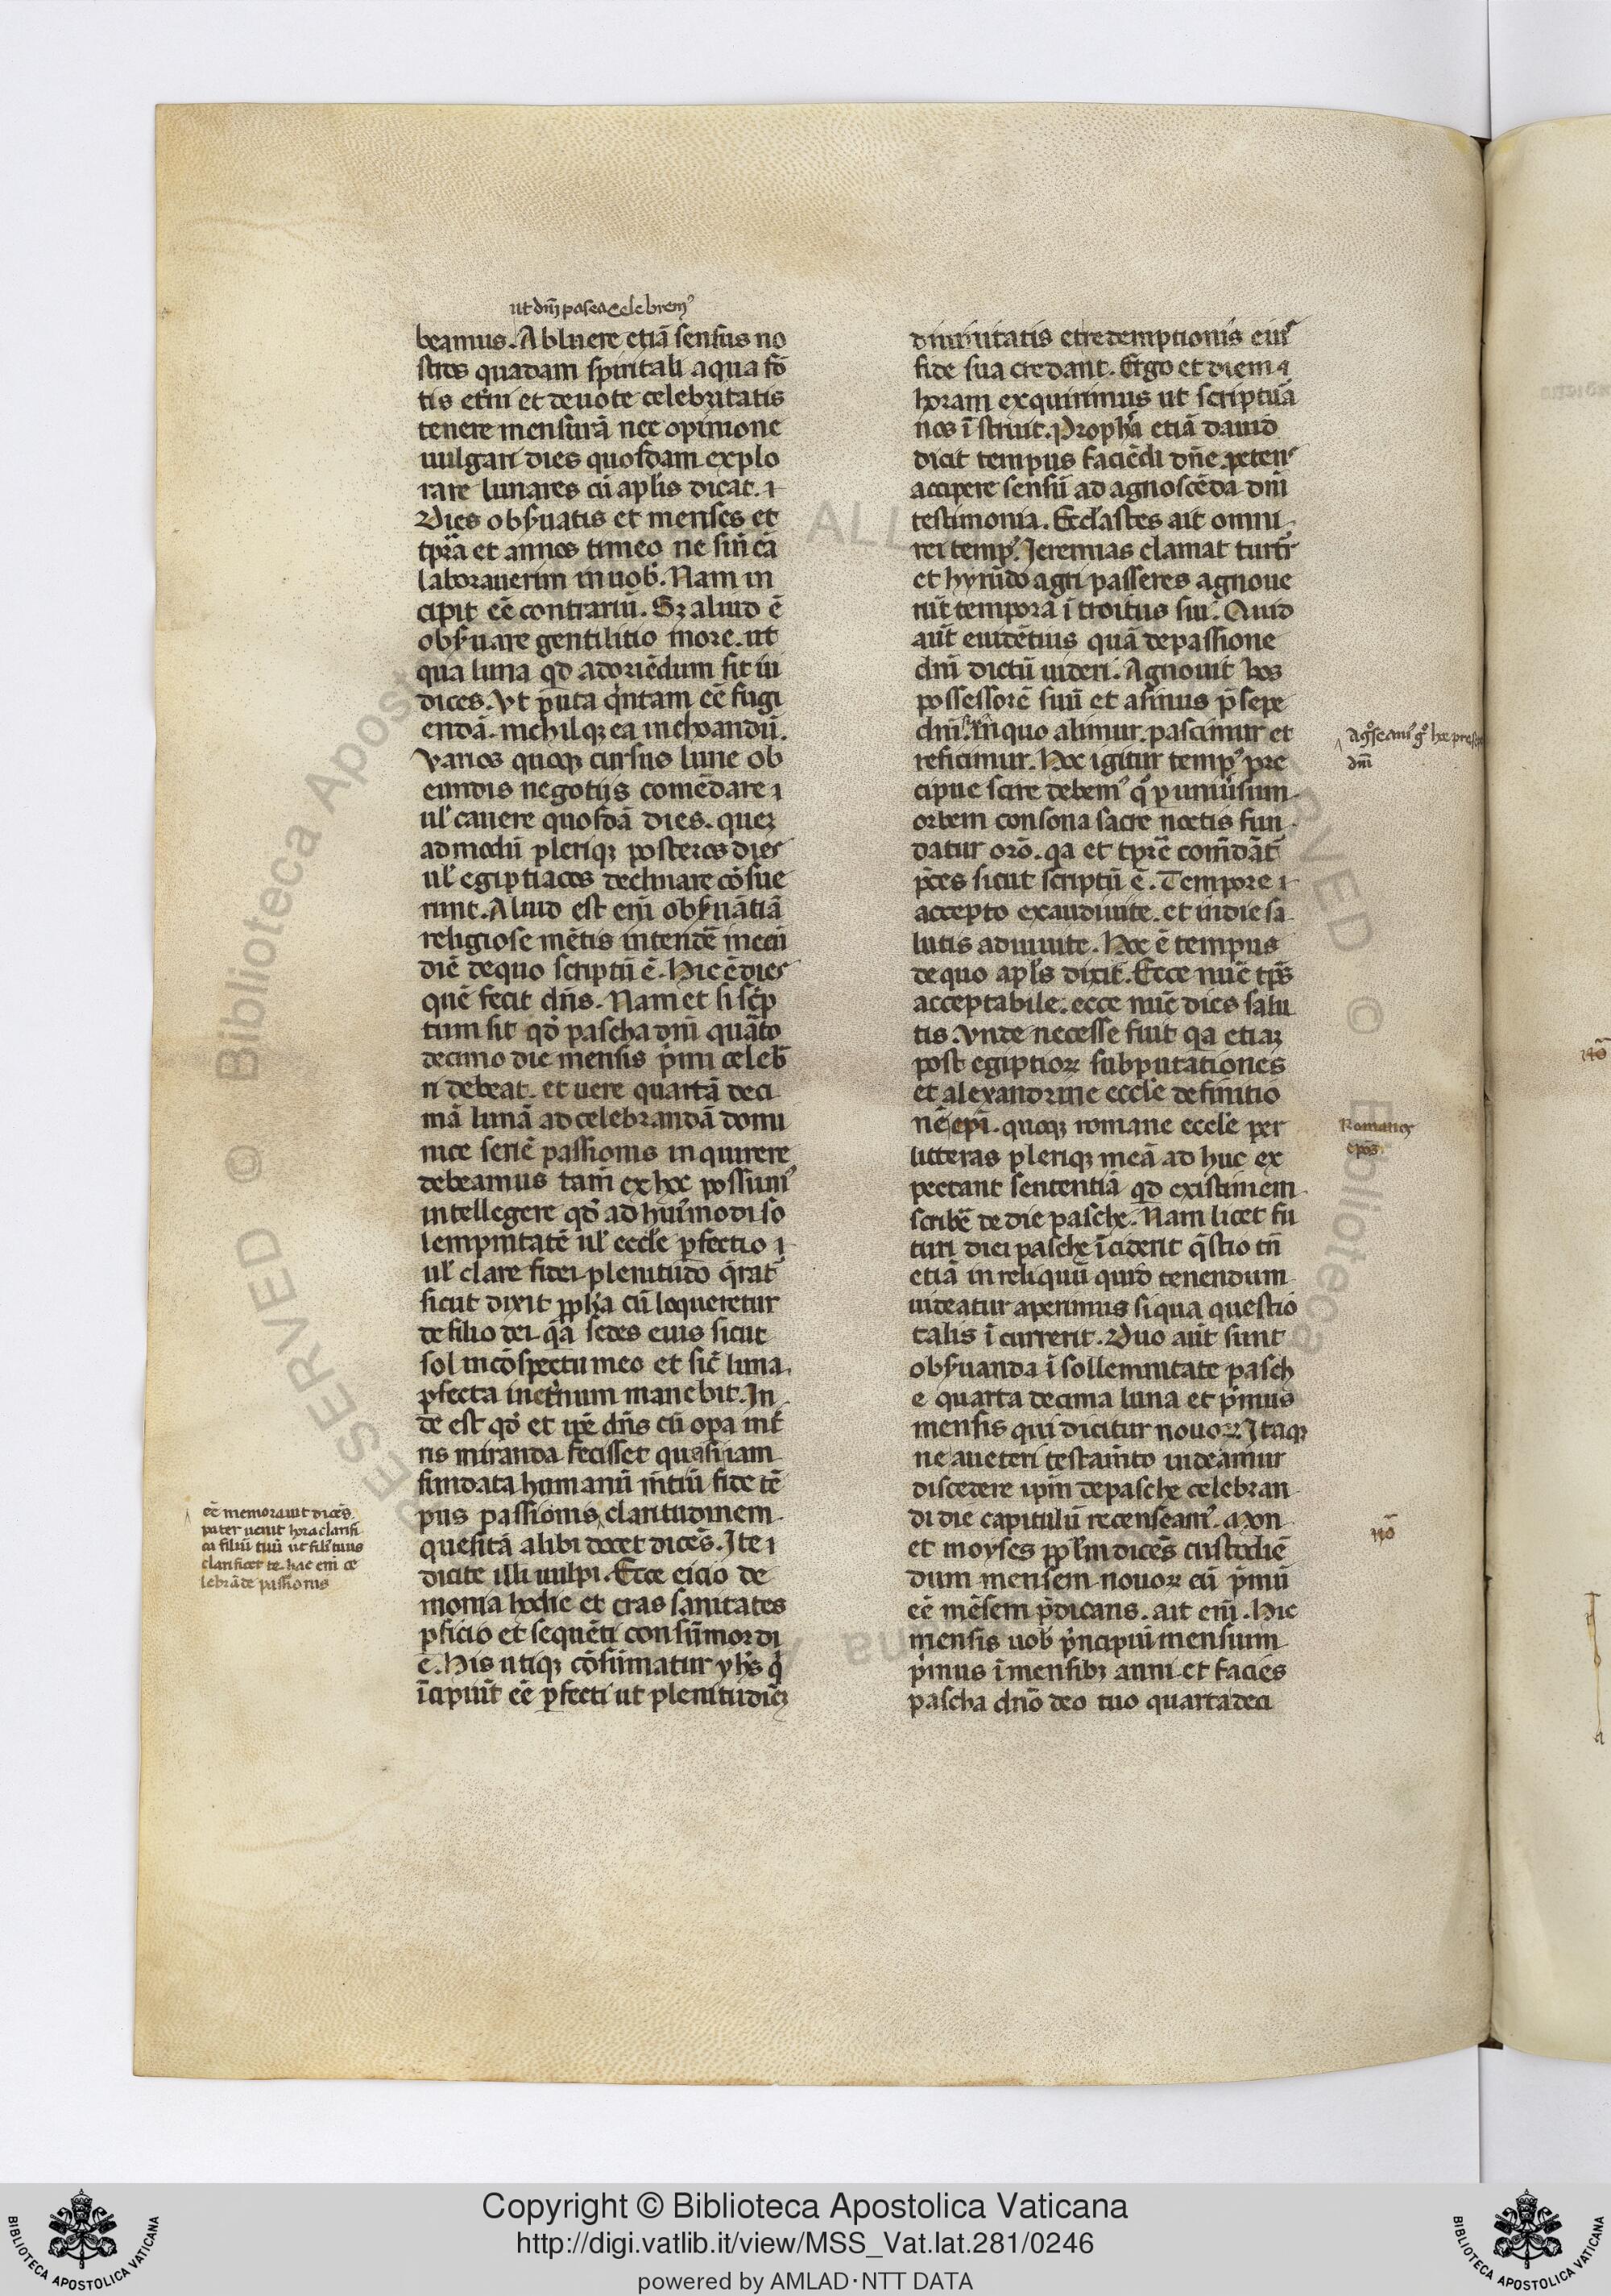 ut dñi pasca celebrem⁹
beamus. Abluere etiã sensus no
stros quadam spiritali aqua fõ
tis et̃ni et deuote celebritatis
tenere mensurã nec opinione
uulgari dies quosdam explo
rare lunares cũ apl̃s dicat.
Dies obs̃uatis et menses et
tp̃ra et annos timeo ne sin̄ cã
laborauerim in uob̃. Nam in
cipit eẽ contrariũ. Sꝫ aliud ẽ
obs̃uare gentilitio more. ut
qua luna qd adoriẽdum sit iu
dices. Vt puta q̃ntam eẽ fugi
endã. nichilqꝫ ea inchoandũ.
Varios quoqꝫ cursus lune ob
eundis negotijs comẽdare
ul̃ cauere quosdã dies. queꝫ
admodũ pleriqꝫ posteros dies
ul̃ egiptiacos declinare cõsue
runt. Aliud est em̃ obs̃uãtiã
religiose mẽtis intendẽ in eũ
diẽ de quo scriptũ ẽ. Hic ẽ dies
quẽ fecit dñs. Nam et si sc̃p
tum sit qď pascha dñi quãto
decimo die mensis p̃mi celeb̃
ri debeat. et uere quartã deci
mã lunã ad celebrandã domi
nice seriẽ passionis inquirere
debeamus tam̃ ex hoc possum⁹
intellegere qď ad hui⁹modi so
lempnitatẽ ul̃ eccl̃e ꝑfectio
ul̃ clare fidei plenitudo q̃rat̃
sicut dixit ꝓph̃a cũ loqueretur
de filio dei. q̃a sedes eius sicut
sol in cõspectu meo et sic̃ luna
ꝑfecta in et̃num manebit. In
de est qď et ip̃e dñs cũ opa int̃
ris miranda fecisset quasi iam
fundata humanũ m̃tiũ fide tẽ
pus passionis claritudinem
quesitã alibi docet dicẽs. Ite
dicite illi uulpi. Ecce eicio de
monia hodie et cras sanitates
ꝑficio et sequẽti consũmor di
e. His utiqꝫ cõsũmatur yh̃s q̃
ĩcipiũt eẽ ꝑfecti ut plenitudiẽꝫ
eẽ memorauit dicẽs.
pater uenit hora clarifi
ca filiũ tuũ ut fili⁹ tuus
clarificet te. hac em̃ ce
lebrãde passionis
diuinitatis et redemptionis ei⁹
fide sua credant. Ergo et diem ⁊
horam exquirimus ut scriptũã
nos ĩstruit. Proph̃a etiã dauid
dicit tempus faciẽdi dñe. peten⁹
accipere sensũ ad agnoscẽda dñi
testimonia. Eccl̃astes ait omni
rei temp⁹. Jeremias clamat turt̃r
et hyrũdo agri passeres agnoue
rũt tempora ĩtroitus sui. Quid
aũt euidẽtius quã de passione
dñi dictũ uideri. Agnouit bos
possessorẽ suũ et asinus p̃sepe
dñi. in quo alimur. pascimur et
reficimur. Hoc igitur temp⁹ pre
cipue scire debem⁹ q̃ ꝑ uniũsum
orbem consona sacre noctis fun
datur orõ. qa et tp̃re com̃dãt̃
p̃ces sicut scriptũ ẽ. Tempore
accepto exaudiui te. et in die sa
lutis adiuui te. Hoc ẽ tempus
de quo apl̃s dixit. Ecce nũc tp̃s
acceptabile. ecce nũc dies salu
tis. Vnde necesse fuit qa etiaꝫ
post egiptioꝝ subputationes
et alexandrine eccl̃e definitio
nẽ ep̃i. quoqꝫ romane eccl̃e per
litteras pleriqꝫ meã ad huc ex
pectant sententiã qd existimem
scribẽ de die pasche. Nam licet fu
turi diei pasche ĩciderit q̃stio tñ
etiã in reliquũ quid tenendum
uideatur aperimus si qua questio
talis ĩcurrerit. Duo aũt sunt
obs̃uanda ĩ sollemnitate pasch
e quarta decima luna et p̃mus
mensis qui dicitur nouoꝝ. Itaqꝫ
ne a ueteri testam̃to uideamur
discedere ip̃m de pasche celebran
di die capitulũ recenseam⁹. Mon
et moyses ppl̃m dicẽs custodiẽ
dum mensem nouoꝝ eũ p̃mũ
eẽ mẽsem p̃dicans. ait em̃. Hic
mensis uob̃ p̃ncipiũ mensium
p̃mus ĩ mensibꝫ anni et facies
pascha dño deo tuo quartadeci
dñi
Roman⁹
ep̃os
nõ
nõ
ALL
RESERVED © Biblioteca Apost
Copyright © Biblioteca Apostolica Vaticana
http://digi.vatlib.it/view/MSS_Vat.lat.281/0246
powered by AMLAD·NTT DATA
BIBLIOTECA APOSTOLICA VATICANA
BIBLIOTECA APOSTOLICA VATICANA